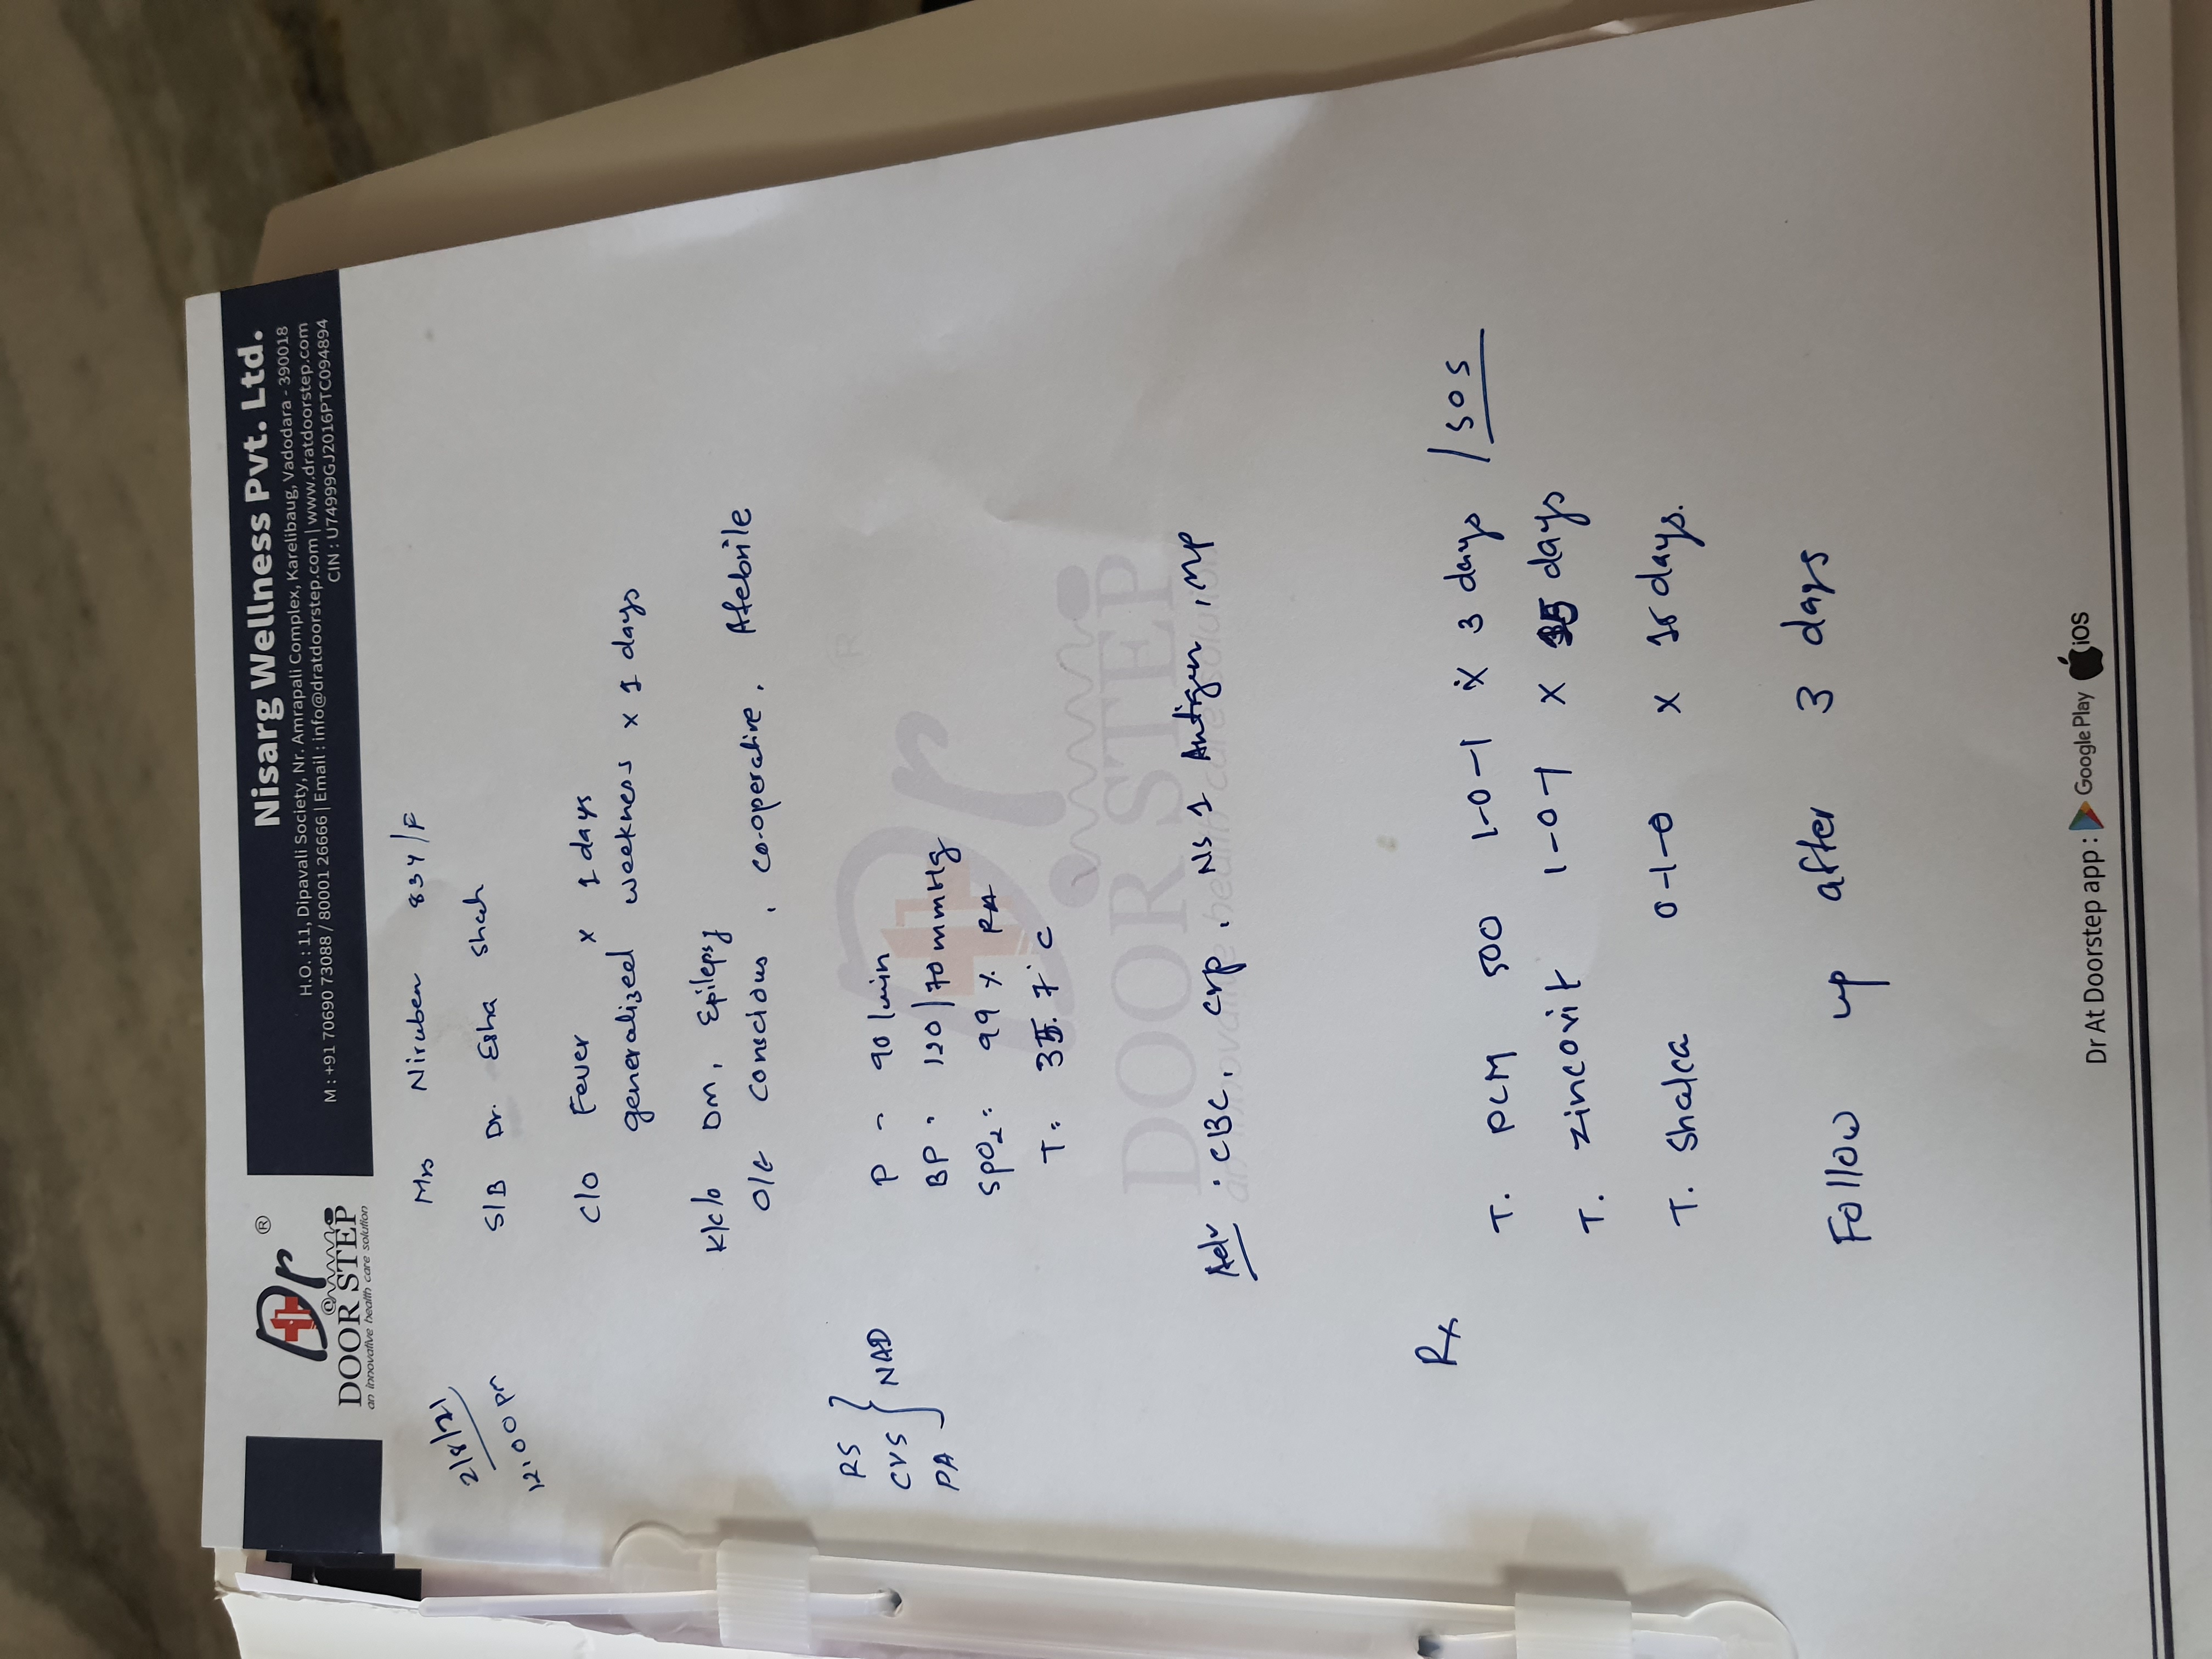 Dr ®
DOOR STEP
an innovative health care solution
Nisarg Wellness Pvt. Ltd.
H.O. : 11, Dipavali Society, Nr. Amrapali Complex, Karelibaug, Vadodara - 390018
M : +91 70690 73088 / 80001 26666 | Email : info@dratdoorstep.com | www.dratdoorstep.com
CIN : U74999GJ2016PTC094894
2/8/21
12:00 pm
Mrs Niruben 83Y/F
S/B Dr. Esha Shah
C/O Fever x 1 days
generalized weekness x 1 days
K/C/O DM, Epilepsy
O/E Conscious, co-operative, Afebrile
RS
CVS } NAD
PA
P - 90 /min
BP - 120/70 mmHg
SpO2: 99 % RA
T: 35.7°C
Dr ®
DOOR STEP
an innovative health care solution
Adv : CBC, crp, NS 1 Antigen, mp
Rx
T. PCM 500 1-0-1 x 3 days / SOS
T. Zincovit 1-0-1 x 15 days
T. Shalca 0-1-0 x 15 days.
Follow up after 3 days
Dr At Doorstep app : Google Play iOS